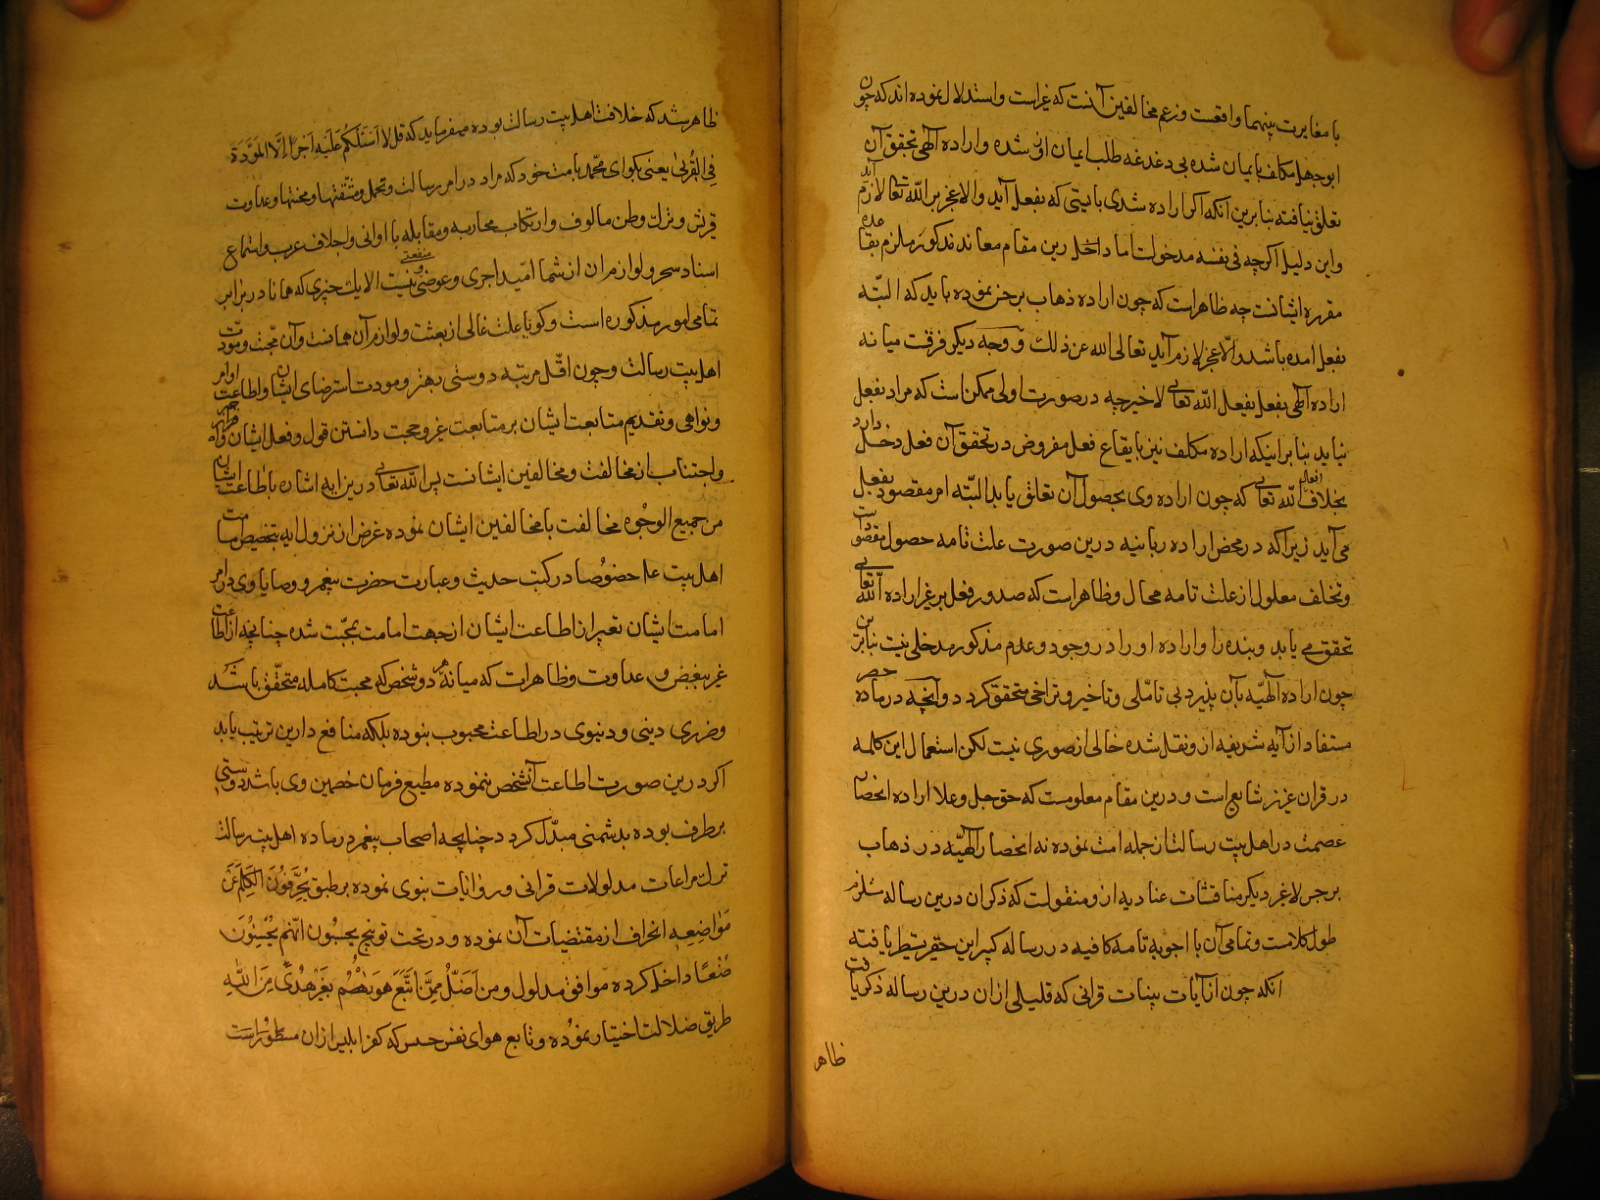 با مغایرت بینهما واقعست وزعم مخالفین آنست که غیر است واستدلال نموده اند که چون
ابوجهل مکلف بایمان شده بی دغدغه طلب ایمان ازو شده و اراده الهی تحقق آن
تعلق نیافته بنابرین انکه اکر اراده شدی بایستی که بفعل آید والا عجز بر الله تعالی لازم آید
واین دلیل اکرچه فی نفسه مدخولست اما داخل رین مقام معاند مذکور ملزم بقاعده
مقرره ایشانست چه ظاهر است که چون اراده ذهاب برجس نموده باید که البته
بفعل امده باشد والا عجز لازم آید تعالی الله عن ذلک و وجه دیکر فرقست میانه
اراده الهی بفعل بفعل الله تعالی لا خیر چه در صورت اولی ممکن است که مراد بفعل
نیاید بنابر اینکه اراده مکلف نیز بایقاع فعل مفروض در تحقق آن فعل دخل دارد
بخلاف افعال الله تعالی که چون اراده وی بحصول آن تعلق یابد البته امر مقصود بفعل
می آید زیرا که در محض اراده ربانیه درین صورت علت تامه حصول مقصود است
وتخلف معلول از علت تامه محال و ظاهر است که صدور فعل بر غیر اراده الله تعالی
تحقق می یابد و بنده را و اراده او را در وجود و عدم مذکور مدخلی نیست بنابرین
چون اراده الهیه بآن پذیرد بی تاملی و تاخیر و تراخی متحقق کرد د وآنچه در ماده حصر
مستفاد از آیه شریفه ازو نقل شده خالی از صوری نیست لکن استعمال این کلمه
در قران عزیز شایع است و درین مقام معلومست که حق جل وعلا اراده انحصار
عصمت در اهل بیت رسالت از جمله امت نموده نه انحصار الهیه در ذهاب
برجس لاغیر دیکر مناقشات عنادیه ازو منقولست که ذکر ان درین رساله مستلزم
طول کلامست و تمامی آن با اجوبه تامه کافیه در رساله کبیر این حقیر تسطیر یافته
انکه چون از آیات بینات قرانی که قلیلی از ان درین رساله ذکر یافت
ظاهر
ظاهر شد که خلافت اهل بیت رسالت بوده میفرماید که قل لا اسئلکم علیه اجرا الا المودة
فی القربی یعنی بکو ای محمد بامت خود که مراد در امر رسالت و تحمل و مشقتها و محنتها و عداوت
قریش و ترک وطن مالوف و ارتکاب محاربه و مقابله با اوانی و اجلاف عرب و استماع
اسناد سحر و لوازم ان از شما امید اجری و عوضی و منفعتی نیست الا یک چیزی که همانا در برابر
تمامی امور مذکوره است و کویا علت غائی از بعثت و لوازم آن همانست وآن محبت و مودت
اهل بیت رسالت و چون اقل مرتبه دوستی بهتر و مودت استرضای ایشان و اطاعت اوامر
و نواهی و تقدیم متابعت ایشان بر متابعت غیر و حجت دانستن قول و فعل ایشان
واجتناب از مخالفت و مخالفین ایشانست پس الله تعالی درین ایه اشاره باطاعت ایشان
من جمیع الوجوه مخالفت با مخالفین ایشان نموده غرض از نزول ایه بتخصیص امامت
اهل بیت علا حضوصا در کتب حدیث و عبارت حضرت پیغمبر و وصایا وی در امر
امامت ایشان تعبیر از اطاعت ایشان از جهت امامت بمحبت شده چنانچه از اطاعت
غیر ببغض و عداوت و ظاهر است که میانه هر دو شخص که محبت کامله متحقق باشد
وضرری دینی و دنیوی در اطاعت محبوب بنوده بلکه منافع دارین ترتیب یابد
اکر درین صورت اطاعت آنشخص ننموده مطیع فرمان خصمین وی باشد دوستی
برطرف بوده بدشمنی مبدل کرد د چنانچه اصحاب پیغمبر در ماده اهل بیت رسالت
ترک مراعات مدلولات قرانی و روایات نبوی نموده بر طبق یحرفون الکلم عن
مواضعه انحراف از مقتضیات آن نموده و در تحت توبیخ یحسبون انهم یحسنون
صنعا داخل کرده موافق مدلول ومن اضل ممن اتبع هویه بغیر هدی من الله
طریق ضلالت اختیار نموده و تابع هوای نفس حسس که کفر ابلیس از ان مسطور است